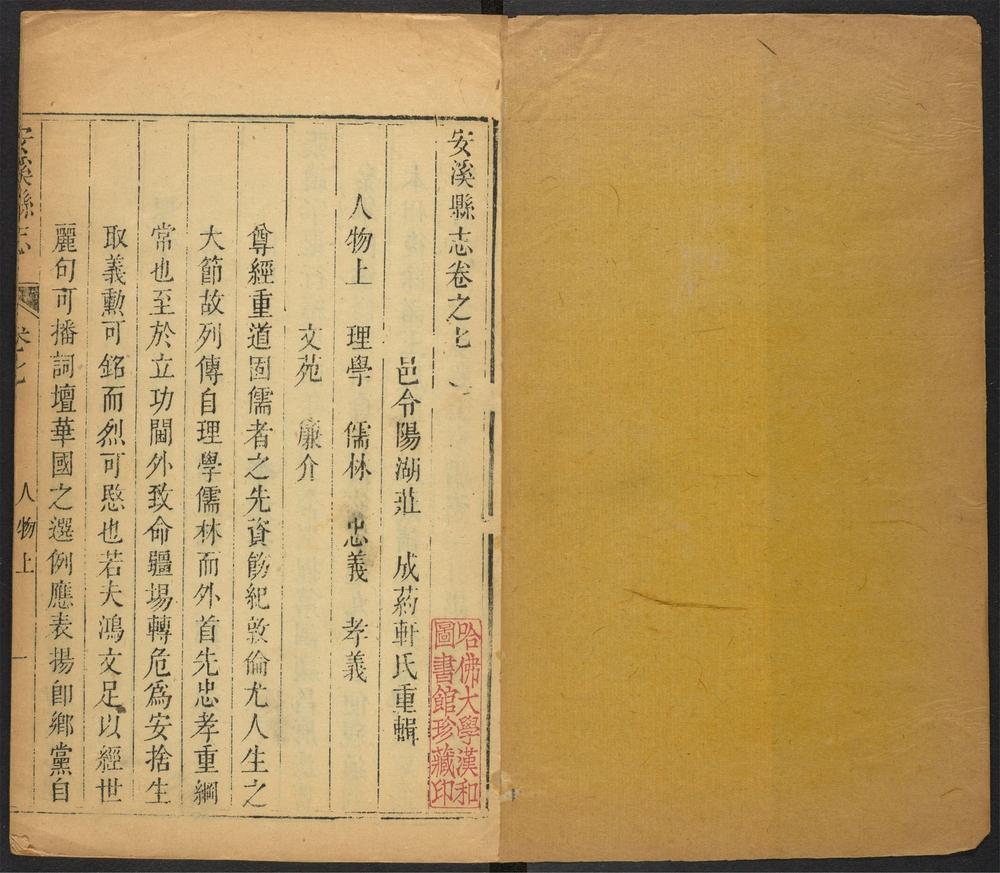 安溪縣志卷之七
邑令陽湖莊　成葯軒氏重輯
人物上　理學　儒林　忠義　孝義
文苑　廉介
尊經重道固儒者之先資飭紀敦倫尤人生之
大節故列傳自理學儒林而外首先忠孝重綱
常也至於立功閫外致命疆場轉危爲安捨生
取義勳可銘而烈可愍也若夫鴻文足以經世
麗句可播詞壇華國之選例應表揚卽鄉黨自
安溪縣志　卷之七　人物上　一
哈佛大學漢和
圖書館珍藏印